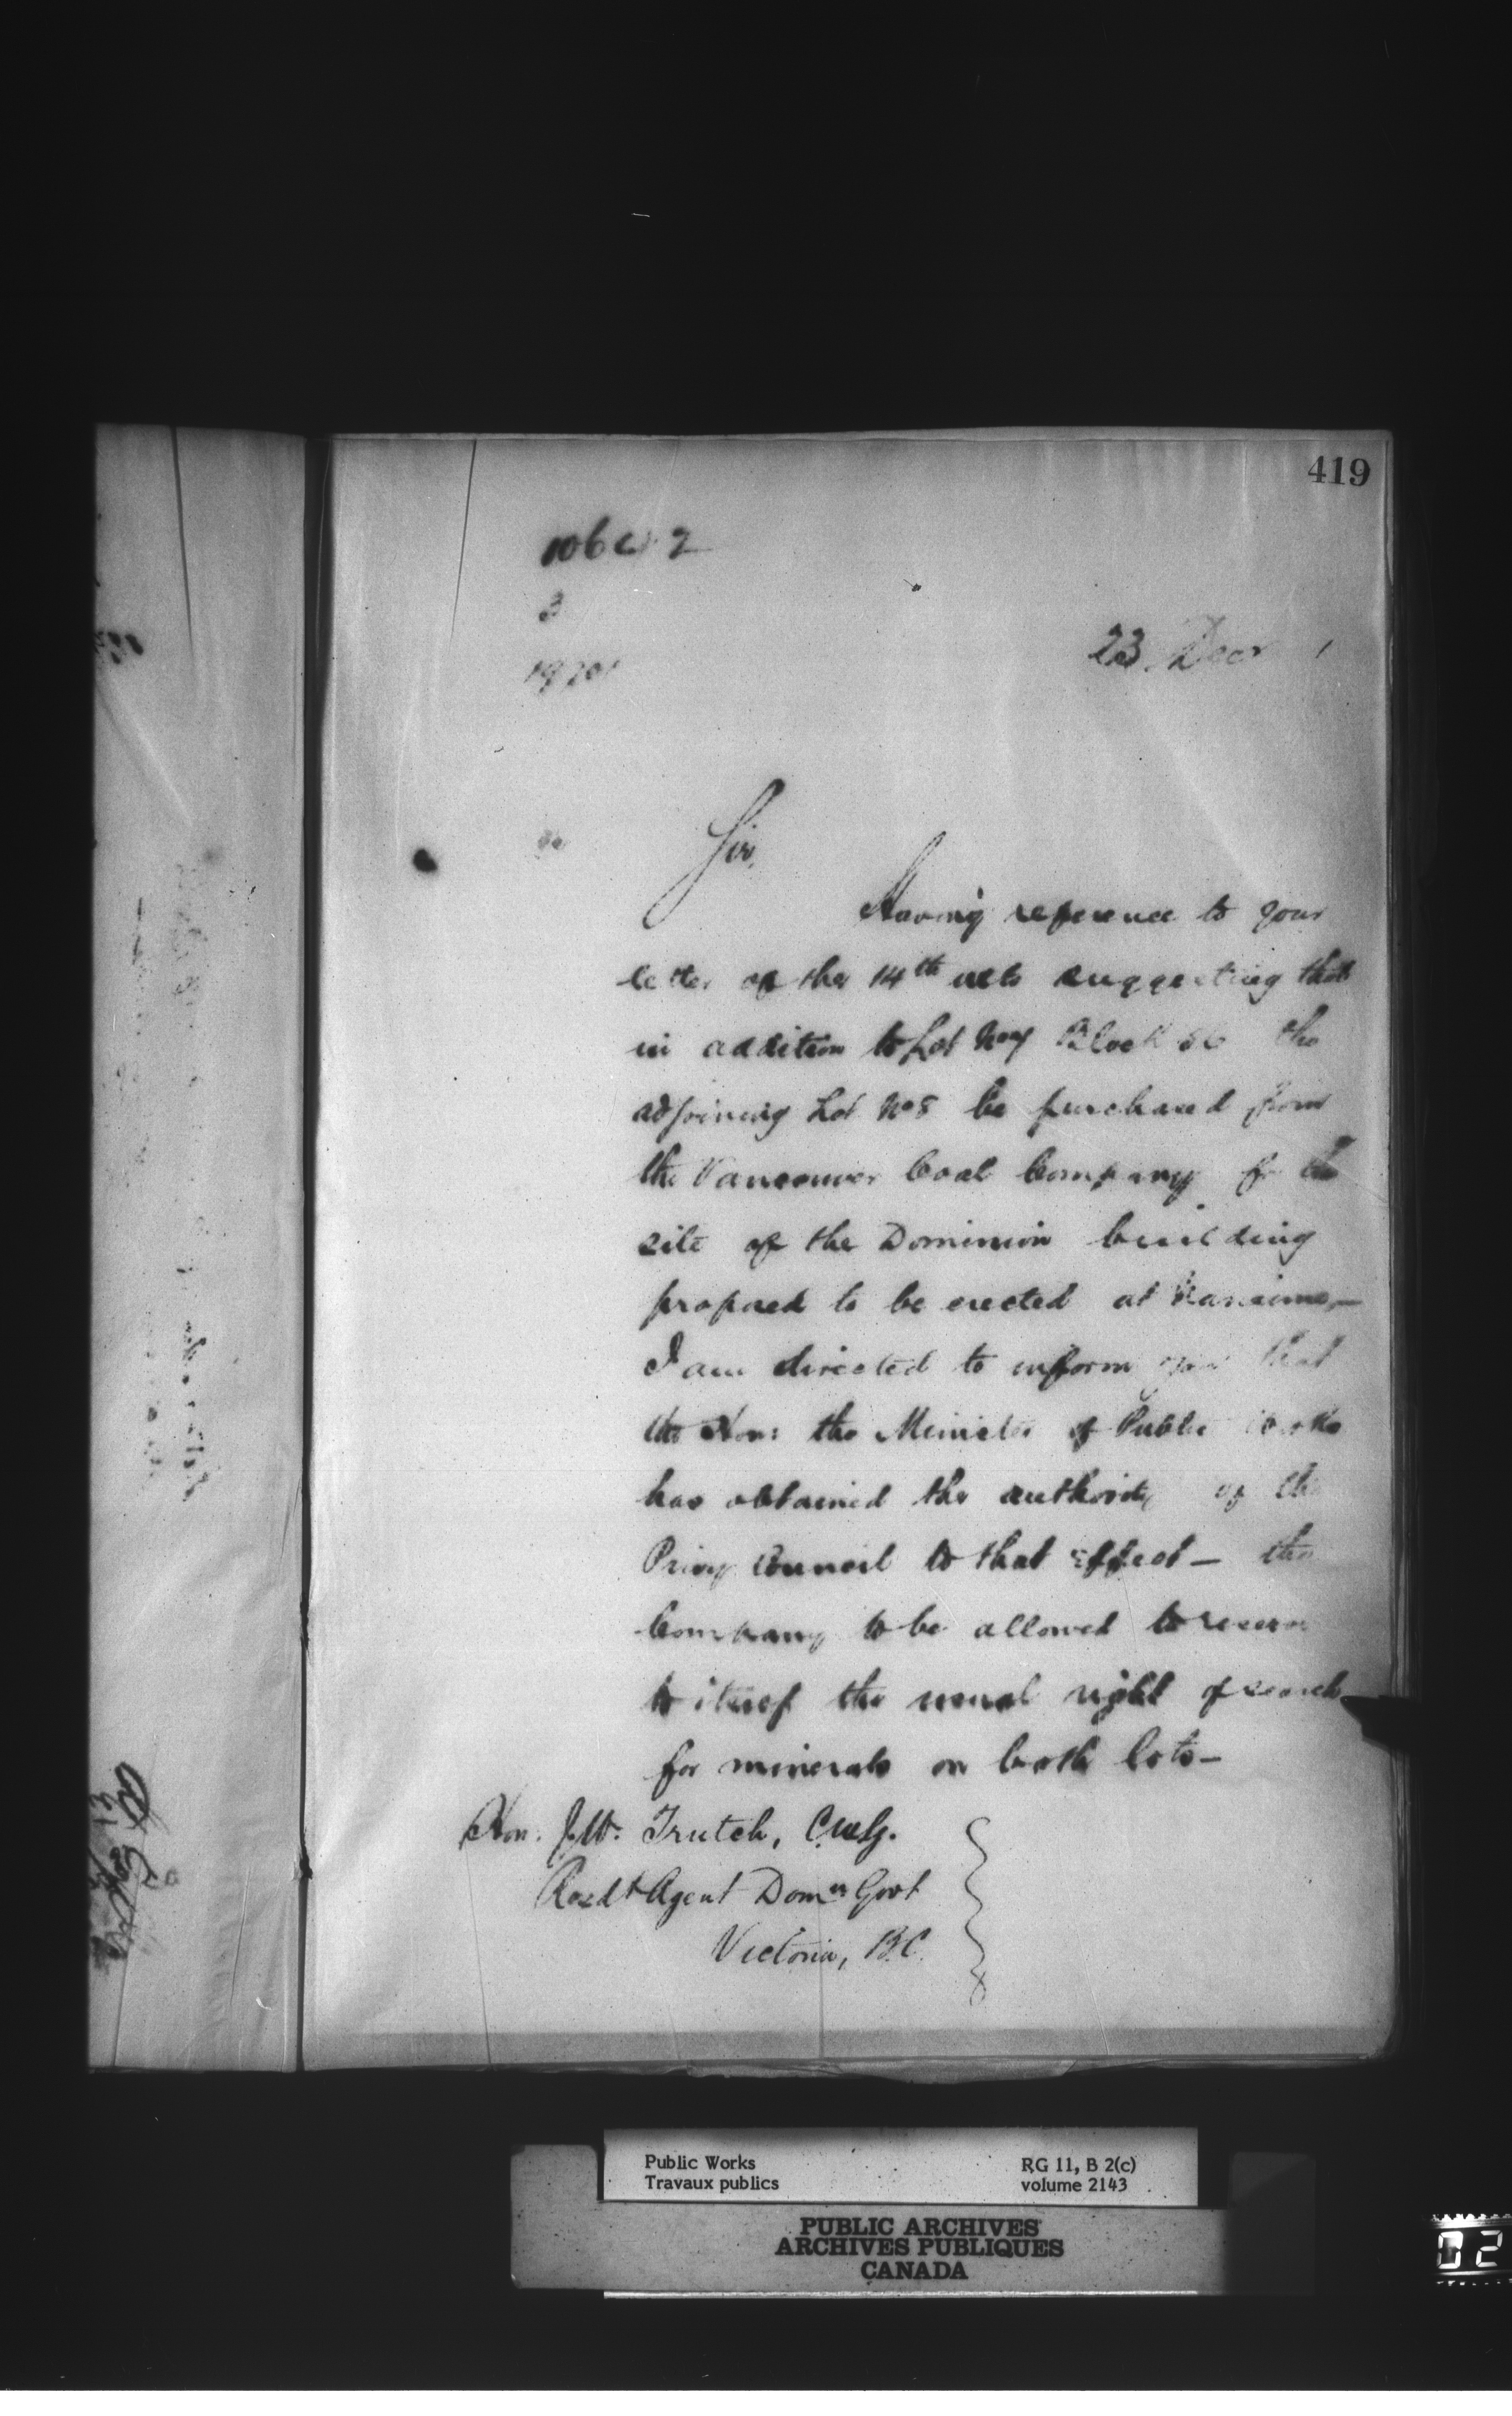 419
23 Decr
Sir,
Having reference to your
letter of the 14th ulto suggesting that
in addition to Lot No 7 Block 56 the
adjoining Lot No 8 be purchased from
the Vancouver Coal Company for the
site of the Dominion building
proposed to be erected at Nanaimo,—
I am directed to inform you that
the Hon: the Minister of Public Works
has obtained the authority of the
Privy Council to that effect — the
Company to be allowed to reserve
to itself the usual right of search
for minerals on both lots —
Hon. J.W. Trutch, C.M.G.
Resdt Agent Domn Govt
Victoria, B.C.
Public Works
Travaux publics
RG 11, B 2(c)
volume 2143
PUBLIC ARCHIVES
ARCHIVES PUBLIQUES
CANADA
02